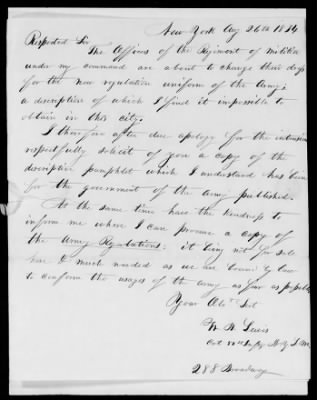 New York Aug 26th 1854
Respected Sir
The Officers of the Regiment of Militia
under my command are about to change their dress
for the new regulation uniform of the Army;
a description of which I find it impossible to
obtain in this city.
I therefore after due apology for the intrusion
respectfully solicit of you a copy of the
descriptive pamphlet which I understand has been
for the government of the Army published.
At the same time have the kindness to
inform me where I can procure a copy of
the Army Regulations: it being not for sale
here & much needed as we are bound by law
to conform the usages of the army as far as possible
Your Obt Svt
W. H. Lewis
Col
288 Broadway